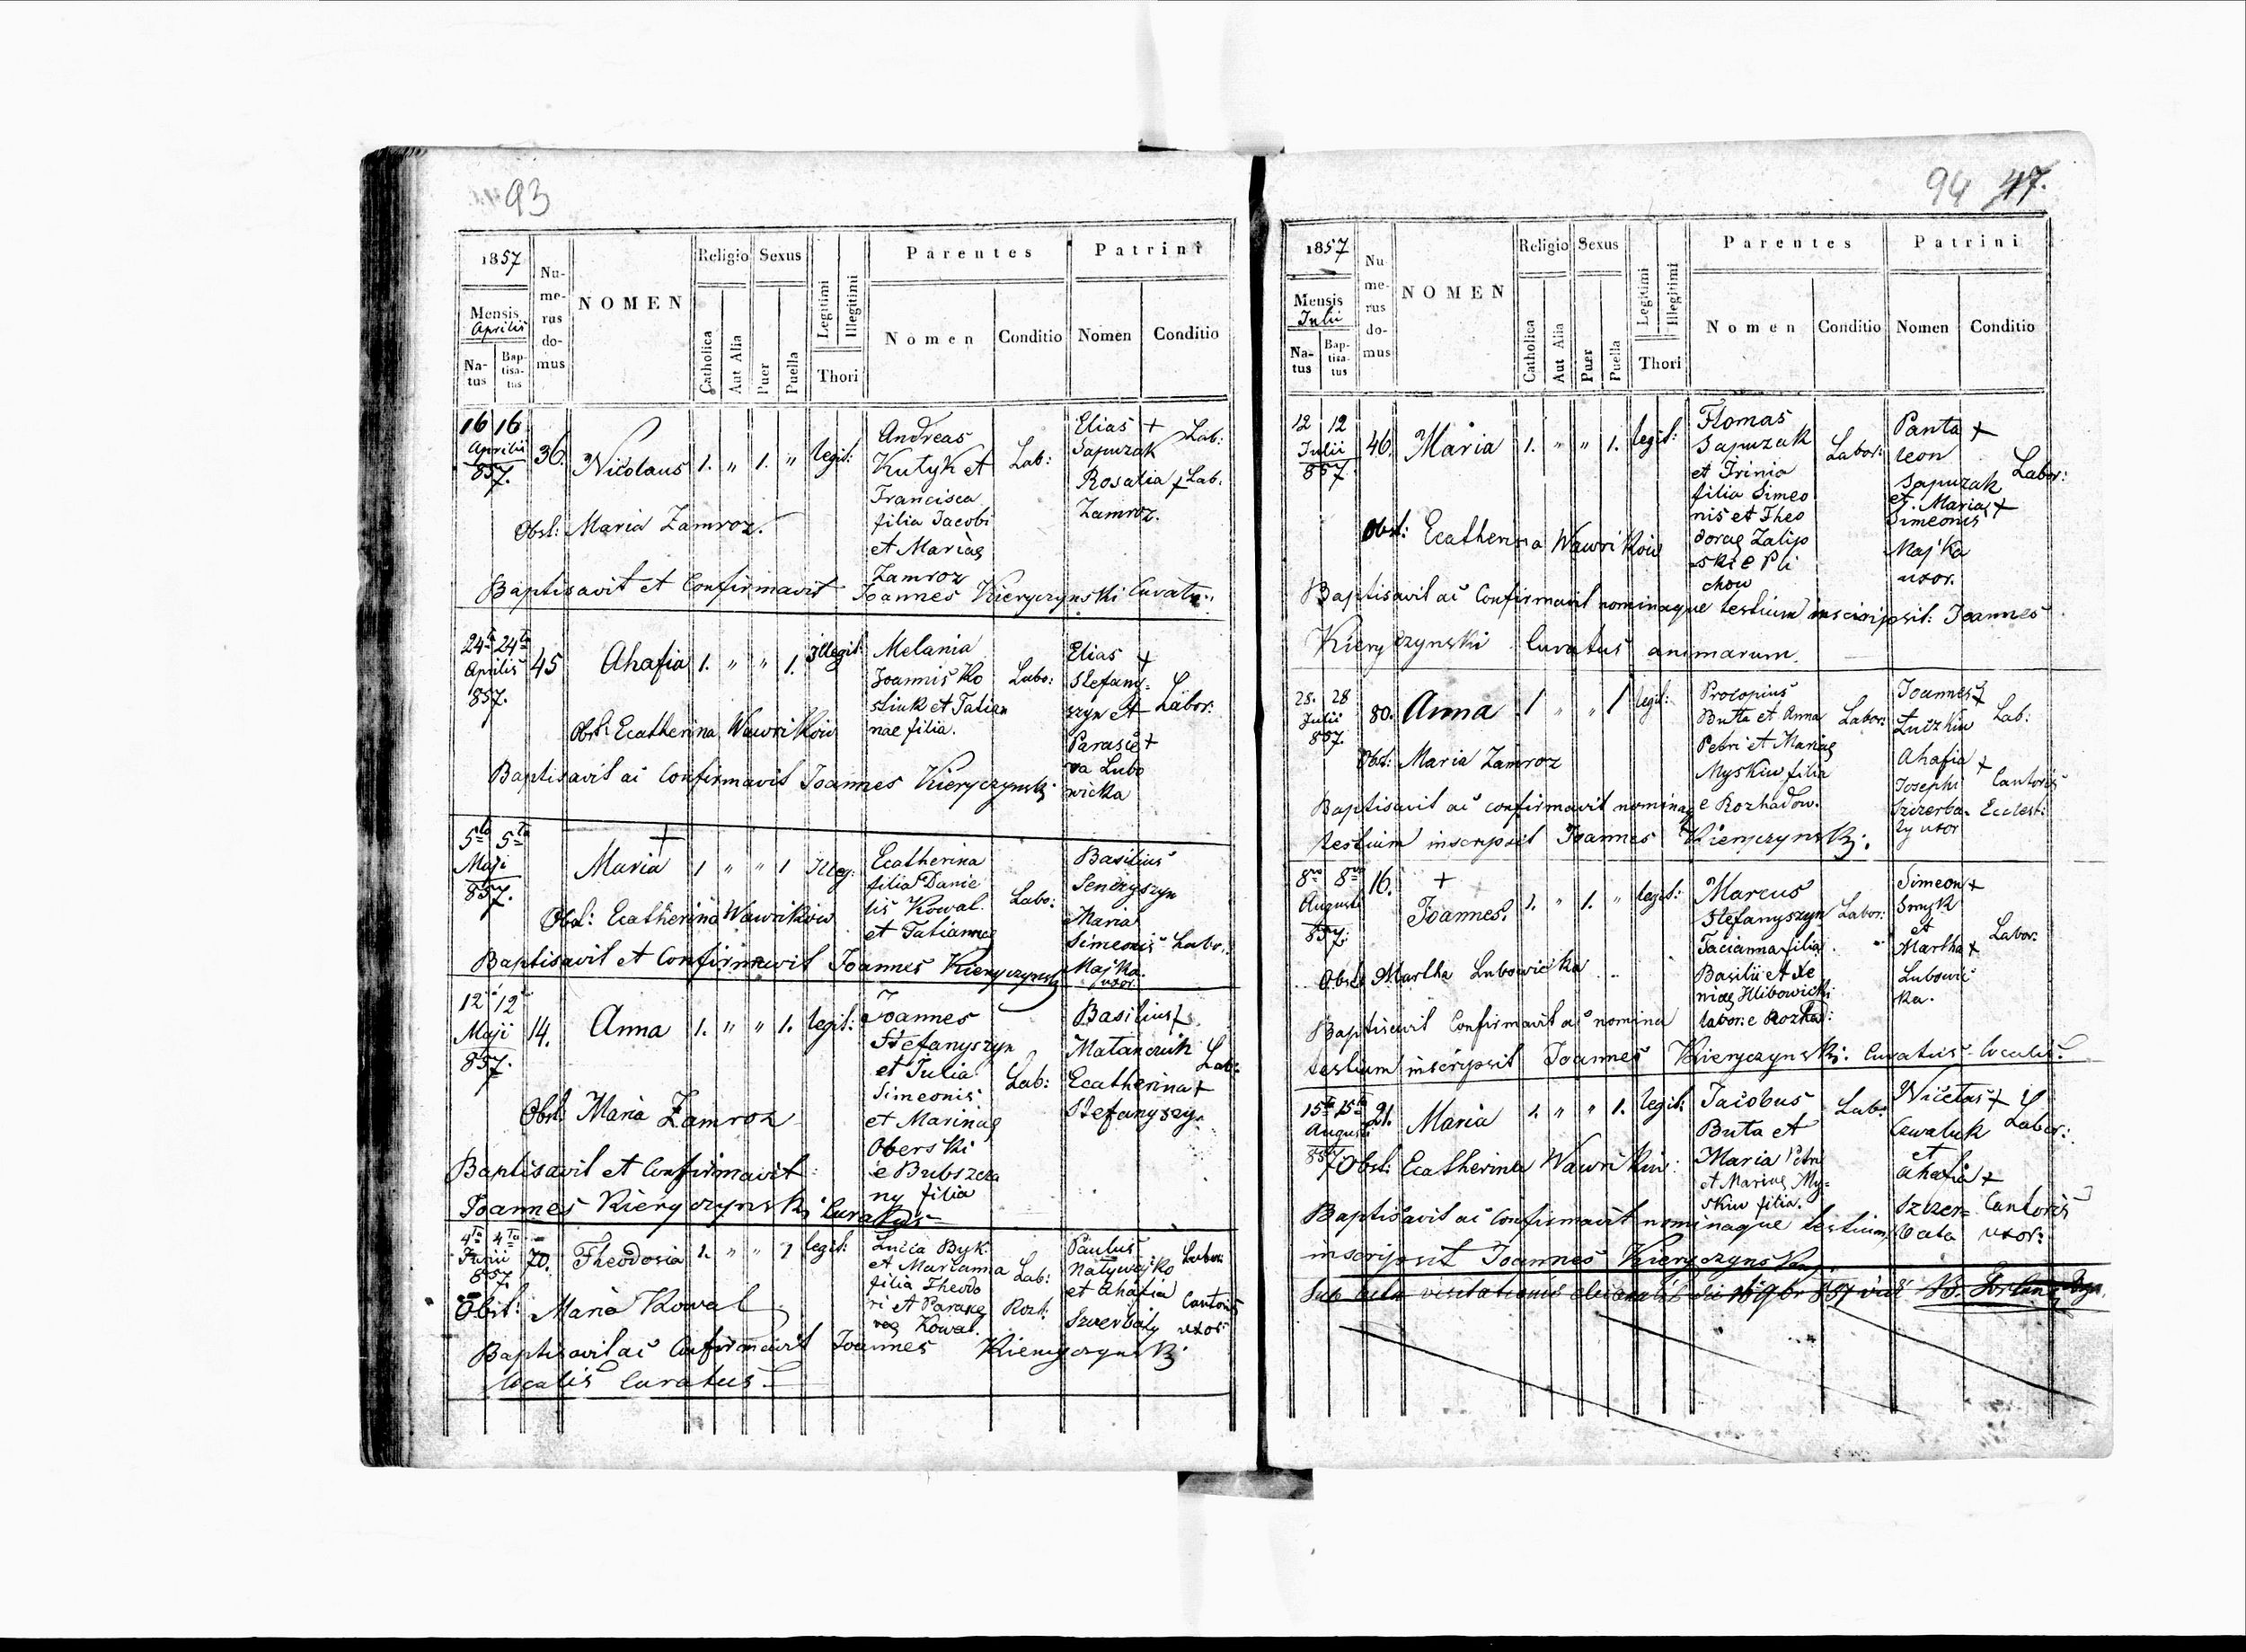 93
1857
Mensis
Aprilis
Na-
tus
Bap-
tisa-
tus
Nu-
me-
rus
do-
mus
NOMEN
Religio
Catholica
Aut Alia
Sexus
Puer
Puella
Legitimi
Illegitimi
Thori
Parentes
Nomen
Conditio
Patrini
Nomen
Conditio
16 16
Aprilis
857.
36.
Nicolaus
1. " 1. "
legit:
Andreas
Kutyk et
Francisca
filia Jacobi
et Mariae
Zamroz
Lab:
Elias +
Sapuzak
Lab:
Rosalia + Lab.
Zamroz.
Obst: Maria Zamroz.
Baptisavit et Confirmavit Joannes Kieryczynski
24ta 24ta
Aprilis
857.
45
Ahafia
1. " " 1.
Illegit:
Melania
Joannis Ko
stiuk et Tatian
nae filia.
Labo:
Elias +
Stefany-
szyn et
Labor:
Parasce +
va Lubo
wicka
Obst: Ecatherina Wawrikow
Baptisavit ac Confirmavit Joannes Kieryczynski
5ta 5ta
Maji
857.
+
Maria
1 " " 1
Illeg:
Ecatherina
filia Danie
lis Kowal
et Tatiannae
Labo:
Basilius
Senczyszyn
Maria
Simeonis Labo.
Majka
uxor.
Obst: Ecatherina Wawrikow
Baptisavit et Confirmavit Joannes Kieryczynski
12 12
Maji
857.
14.
Anna
1. " " 1.
legit:
Joannes
Stefanyszyn
et Julia
Simeonis
et Marinae
Oberski
e Bubszcza
ny filia
Lab:
Basilius +
Matanczuk
Lab:
Ecatherina +
Stefanyszyn
Obst: Maria Zamroz
Baptisavit et Confirmavit
Joannes Kieryczynski Curatus
4ta 4ta
Junii
857.
70.
Theodosia
1. " " 1
legit:
Lucia Byk
et Marianna
filia Theodo
ri et Paraske
vae Kowal.
Lab:
Rozh:
Paulus
Natywajko
Labor:
et Ahafia
Szczerbaty
Cantoris
uxor
Obst: Maria Kowal
Baptisavit ac Confirmavit Joannes Kieryczynski
localis Curatus
94 47.
1857
Mensis
Julii
Na-
tus
Bap-
tisa-
tus
Nu
me-
rus
do-
mus
NOMEN
Religio
Catholica
Aut Alia
Sexus
Puer
Puella
Legitimi
Illegitimi
Thori
Parentes
Nomen
Conditio
Patrini
Nomen
Conditio
12 12
Julii
857
46.
Maria
1. " " 1.
legit:
Thomas
Sapuzak
et Irinia
filia Simeo
nis et Theo
dorae Zalip
ski e Pli
chow
Labor:
Panta +
leon
Sapuzak
Labor:
et Maria +
Simeonis
Majka
uxor.
Obst: Ecatherina Wawrikow
Baptisavit ac Confirmavit nominaque testium inscripsit: Joannes
Kieryczynski Curatus animarum.
28. 28
Julii
857.
80.
Anna
1 " " 1
legit:
Procopius
Butta et Anna
Petri et Mariae
Myskiw filia
e Rozhadow.
Labor:
Joannes +
Luczkiw
Lab:
Ahafia +
Josephi
Szczerba-
ty uxor
Cantoris
Eccles:
Obst: Maria Zamroz
Baptisavit ac confirmavit nominaq
testium inscripsit Joannes Kieryczynski.
8va 8va
Augusti
857.
16.
+
Joannes.
1. " 1. "
legit:
Marcus
Stefanyszyn
Tacianna filia
Basilii et Xe
niae Hlibowicki
labor: e Rozhad:
Labor:
Simeon +
Smyk
et
Martha +
Labor:
Lubowic
ka.
Obst: Martha Lubowicka
Baptisavit Confirmavit ac nomina
testium inscripsit Joannes Kieryczynski: Curatus localis.
15ta 15ta
Augusti
857
21.
Maria
1. " " 1.
legit:
Jacobus
Buta et
Maria Petri
et Mariae My-
skiw filia.
Lab:
Nicetas +
Czwaluk
Labor:
et
Ahafia +
Szczer-
bata
Cantoris
uxor:
Obst: Ecatherina Wawrikiw:
Baptisavit ac Confirmavit nominaque testium
inscripsit Joannes Kieryczynski
Sub actu visitationis